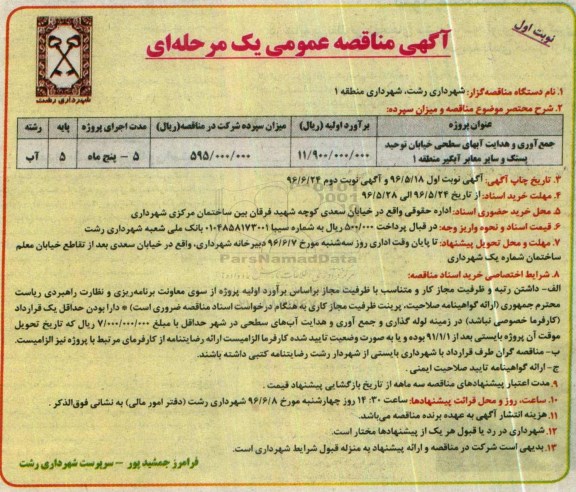 نوبت اول
آگهی مناقصه عمومی یک مرحله‌ای
شهرداری رشت
۱. نام دستگاه مناقصه‌گزار: شهرداری رشت، شهرداری منطقه ۱
۲. شرح مختصر موضوع مناقصه و میزان سپرده:
عنوان پروژه	برآورد اولیه (ریال)	میزان سپرده شرکت در مناقصه(ریال)	مدت اجرای پروژه	پایه	رشته
جمع‌آوری و هدایت آبهای سطحی خیابان توحید پستک و سایر معابر آبگیر منطقه ۱	۱۱/۹۰۰/۰۰۰/۰۰۰	۵۹۵/۰۰۰/۰۰۰	۵ - پنج ماه	۵	آب
۳. تاریخ چاپ آگهی: آگهی نوبت اول ۹۶/۵/۱۸ و آگهی نوبت دوم ۹۶/۶/۲۴
۴. مهلت خرید اسناد: از تاریخ ۹۶/۵/۲۴ الی ۹۶/۵/۲۸
۵. محل خرید حضوری اسناد: اداره حقوقی واقع در خیابان سعدی کوچه شهید فرقان بین ساختمان مرکزی شهرداری
۶. قیمت اسناد و نحوه واریز وجه: در قبال پرداخت ۵۰۰/۰۰۰ ریال به شماره سیبا ۰۱۰۴۸۵۸۱۷۳۰۰۱ بانک ملی شعبه شهرداری رشت
۷. مهلت و محل تحویل پیشنهاد: تا پایان وقت اداری روز سه‌شنبه مورخ ۹۶/۶/۷ دبیرخانه شهرداری، واقع در خیابان سعدی بعد از تقاطع خیابان معلم
ساختمان شماره یک شهرداری
۸. شرایط اختصاصی خرید اسناد مناقصه:
الف- داشتن رتبه و ظرفیت مجاز کار و متناسب با ظرفیت مجاز براساس برآورد اولیه پروژه از سوی معاونت برنامه‌ریزی و نظارت راهبردی ریاست
محترم جمهوری (ارائه گواهینامه صلاحیت، پرینت ظرفیت مجاز کاری به هنگام درخواست اسناد مناقصه ضروری است) * دارا بودن حداقل یک قرارداد
(کارفرما خصوصی نباشد) در زمینه لوله گذاری و جمع آوری و هدایت آب‌های سطحی در شهر حداقل با مبلغ ۷/۰۰۰/۰۰۰/۰۰۰ ریال که تاریخ تحویل
موقت آن پروژه بایستی بعد از ۹۱/۱/۱ بوده و یا به صورت وضعیت تایید شده کارفرما الزامیست ارائه رضایتنامه از کارفرمای مرتبط با پروژه نیز الزامیست.
ب- مناقصه گران طرف قرارداد با شهرداری بایستی از شهردار رشت رضایتنامه کتبی داشته باشند.
ج- ارائه گواهینامه تایید صلاحیت ایمنی .
۹. مدت اعتبار پیشنهادهای مناقصه سه ماهه از تاریخ بازگشایی پیشنهاد قیمت .
۱۰. ساعت، روز و محل قرائت پیشنهادها: ساعت ۱۴:۳۰ روز چهارشنبه مورخ ۹۶/۶/۸ شهرداری رشت (دفتر امور مالی) به نشانی فوق‌الذکر.
۱۱. هزینه انتشار آگهی به عهده برنده مناقصه می‌باشد.
۱۲. شهرداری در رد یا قبول هر یک از پیشنهادها مختار است.
۱۳. بدیهی است شرکت در مناقصه و ارائه پیشنهاد به منزله قبول شرایط شهرداری است.
فرامرز جمشید پور - سرپرست شهرداری رشت
ParsNamadData